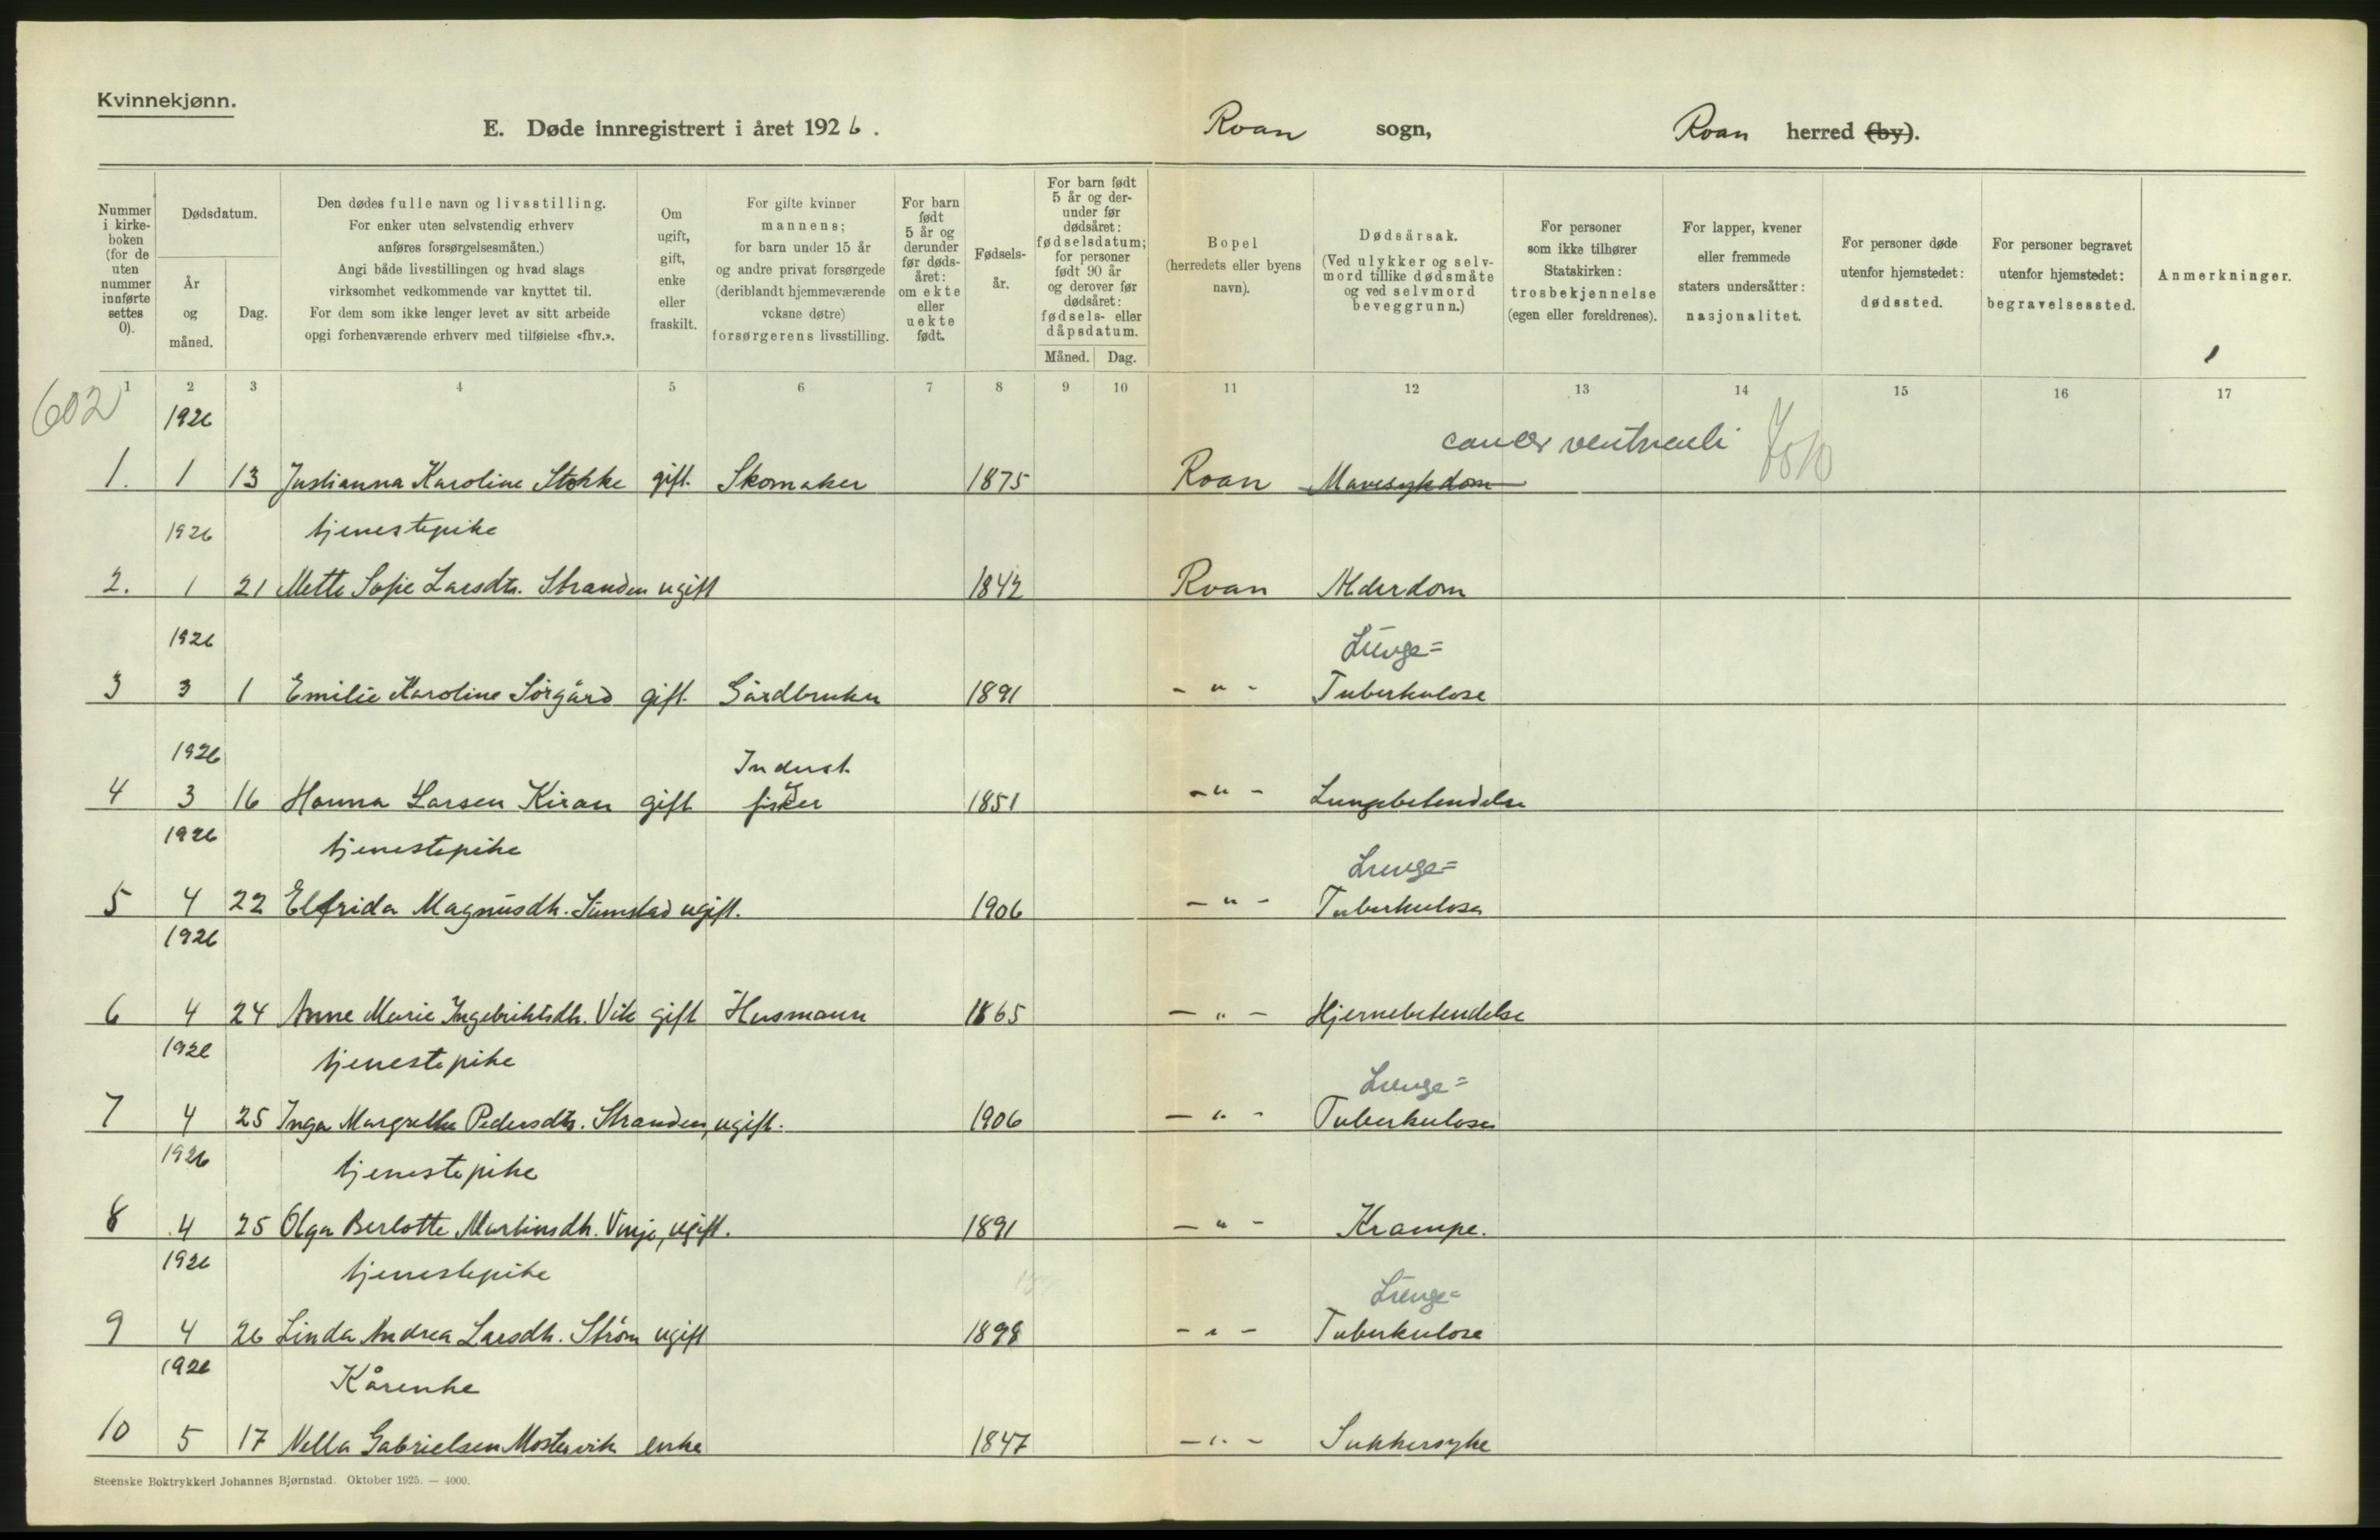 Kvinnekjønn.
E. Døde innregistrert i året 1926. Roan sogn, Roan herred (by).
Nummer i kirkeboken (for de uten nummer innførte settes 0).
Dødsdatum.
År og måned.
Dag.
Den dødes fulle navn og livsstilling.
For enker uten selvstendig erhverv
anføres forsørgelsesmåten.)
Angi både livsstillingen og hvad slags
virksomhet vedkommende var knyttet til.
For dem som ikke lenger levet av sitt arbeide
opgi forhenværende erhverv med tilføielse «fhv.».
Om ugift, gift, enke eller fraskilt.
For gifte kvinner
mannens;
for barn under 15 år
og andre privat forsørgede
(deriblandt hjemmeværende
voksne døtre)
forsørgerens livsstilling.
For barn født 5 år og derunder før dødsåret: om ekte eller uekte født.
Fødselsår.
For barn født 5 år og derunder før dødsåret: fødselsdatum; for personer født 90 år og derover før dødsåret: fødsels- eller dåpsdatum.
Måned. Dag.
Bopel
(herredets eller byens
navn).
Dødsårsak.
(Ved ulykker og selv-
mord tillike dødsmåte
og ved selvmord
beveggrunn.)
For personer
som ikke tilhører
Statskirken:
trosbekjennelse
(egen eller foreldrenes).
For lapper, kvener
eller fremmede
staters undersåtter:
nasjonalitet.
For personer døde
utenfor hjemstedet:
dødssted.
For personer begravet
utenfor hjemstedet:
begravelsessted.
Anmerkninger.
1 2 3 4 5 6 7 8 9 10 11 12 13 14 15 16 17
602
1926
cancer ventriculi
1. 1 13 Justianna Karoline Stokke gift. Skomaker 1875 Roan Mavesykdom
1926 tjenestepike
2. 1 21 Mette Sofie Larsdtr. Stranden ugift 1842 Roan Alderdom
1926 Lunge=
3 3 1 Emilie Karoline Sörgård gift. Gårdbruker 1891 - " - Tuberkulose
1926 Inderst
4 3 16 Hanna Larsen Kiran gift fisker 1851 - " - Lungebetendelse
1926 tjenestepike Lunge=
5 4 22 Elfrida Magnusdtr. Sumstad ugift. 1906 - " - Tuberkulose
1926
6 4 24 Anne Marie Ingebriktsdtr. Vik gift Husmann 1865 - " - Hjernebetendelse
1926 tjenestepike Lunge=
7 4 25 Inga Margrethe Pedersdtr. Stranden, ugift. 1906 - " - Tuberkulose
1926 tjenestepike
8 4 25 Olga Berlotte Martinsdtr. Vinje, ugift. 1891 - " - Krampe.
1926 tjenestepike Lunge=
9 4 26 Linda Andrea Larsdtr. Strøm ugift 1898 - " - Tuberkulose
1926 Kårenke
10 5 17 Nella Gabrielsen Mostervik enke 1847 - " - Sukkersyke
Steenske Boktrykkeri Johannes Bjørnstad. Oktober 1925. — 4000.